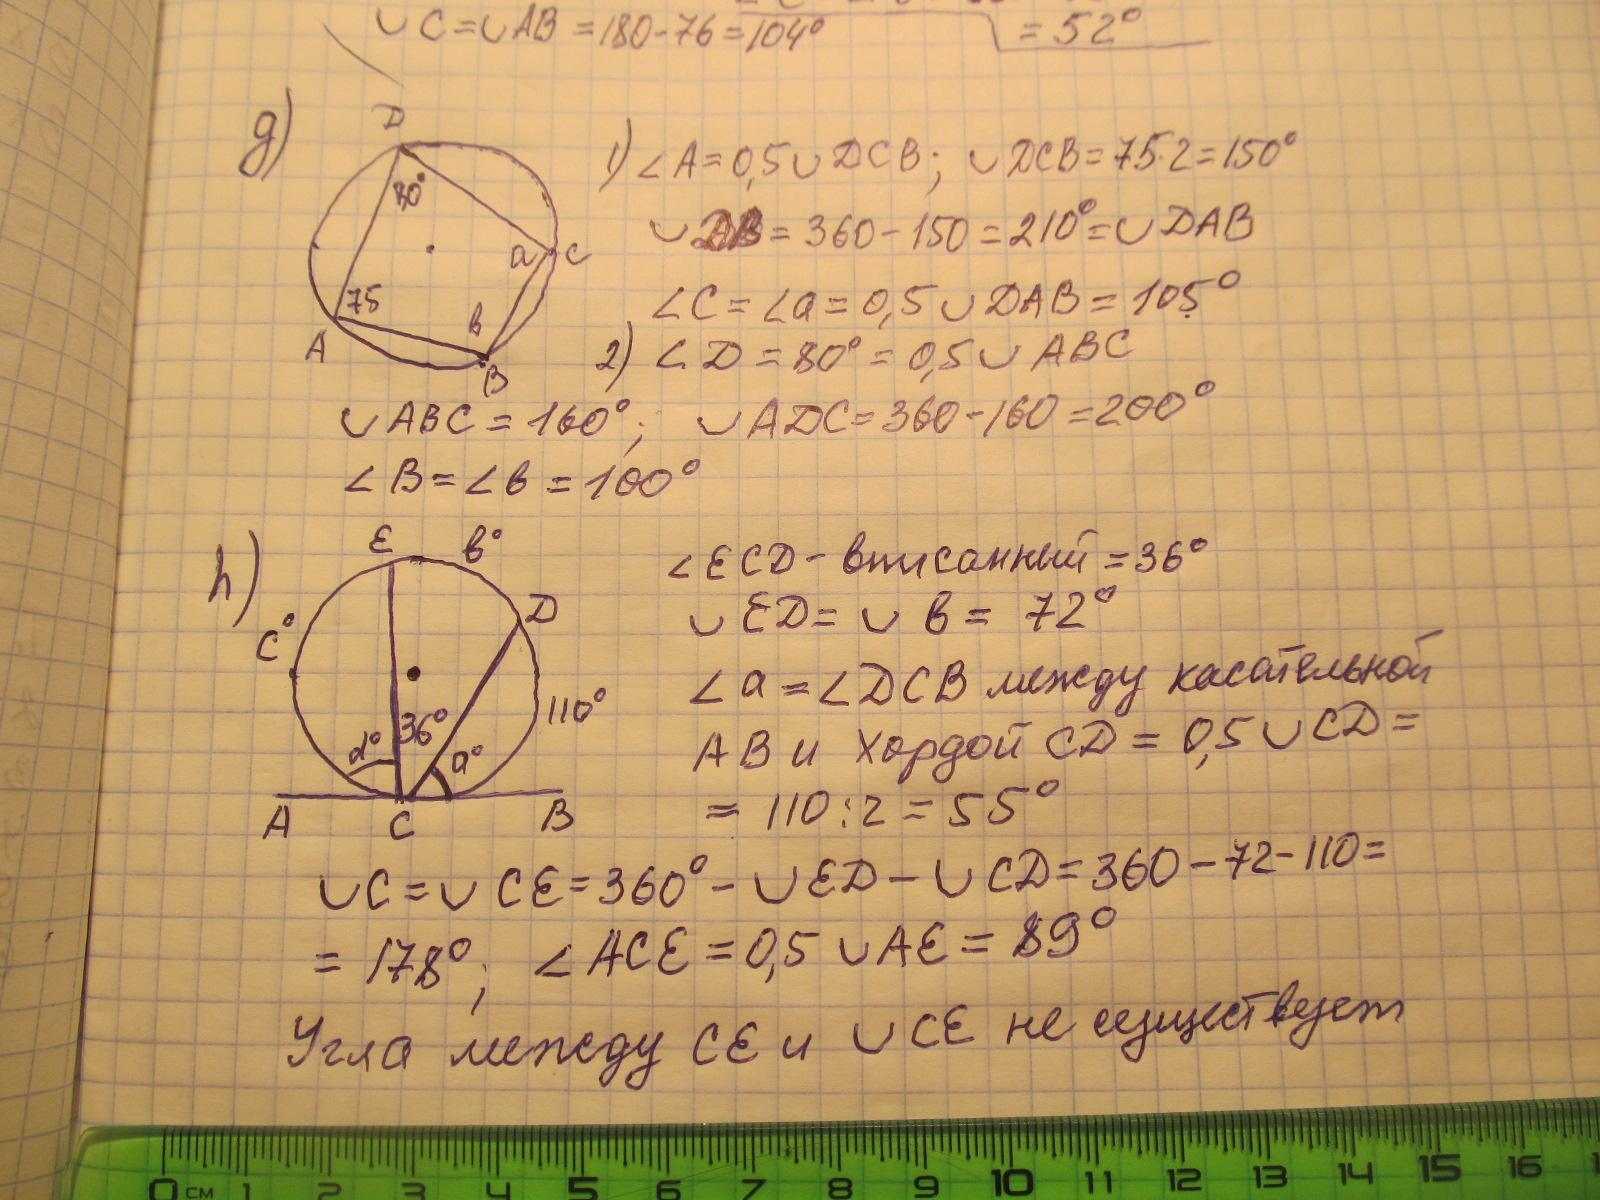 ∪C=∪AB=180-76=104°
=52°
g)
D
80°
a
C
75
b
A
B
1) ∠A=0,5∪DCB; ∪DCB=75·2=150°
∪DB=360-150=210°=∪DAB
∠C=∠a=0,5∪DAB=105°
2) ∠D=80°=0,5∪ABC
∪ABC=160°; ∪ADC=360-160=200°
∠B=∠b=100°
h)
E
b°
D
C°
110°
36°
d°
a°
A
C
B
∠ECD-вписанный=36°
∪ED=∪b=72°
∠a=∠DCB между касательной
AB и хордой CD=0,5∪CD=
=110:2=55°
∪C=∪CE=360°-∪ED-∪CD=360-72-110=
=178°; ∠ACE=0,5∪AE=89°
Угла между CE и ∪CE не существует
0 см 1 2 3 4 5 6 7 8 9 10 11 12 13 14 15 16